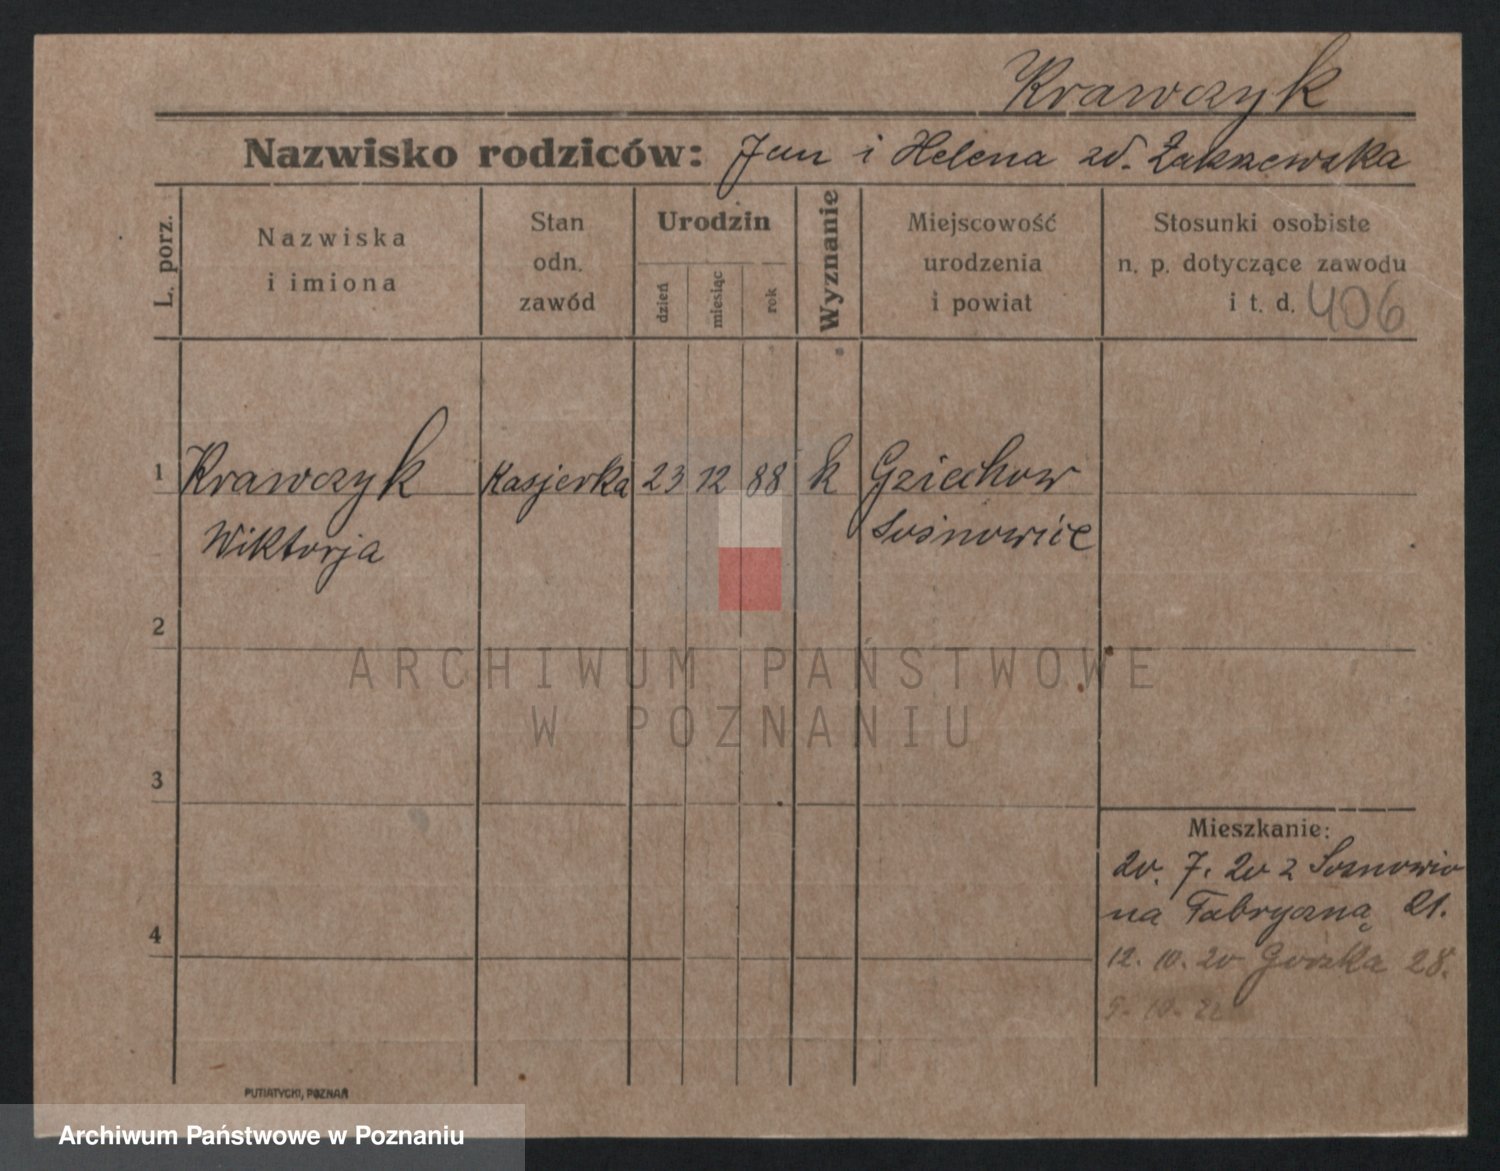 Krawczyk
Nazwisko rodziców: Jan i Helena zd. Zakszewska
L. porz.
Nazwiska
i imiona
Stan
odn.
zawód
Urodzin
dzień
miesiąc
rok
Wyznanie
Miejscowość
urodzenia
i powiat
Stosunki osobiste
n. p. dotyczące zawodu
i t. d. 406
1 Krawczyk Kasjerka 23 12 88 k
Wiktorja
2
ARCHIWUM PAŃSTWOWE
W POZNANIU
3
Mieszkanie:
20. 7. 20 z
na Fabryczną 21.
4
12. 10. 20 28.
PUTIATYCKI, POZNAŃ
Archiwum Państwowe w Poznaniu